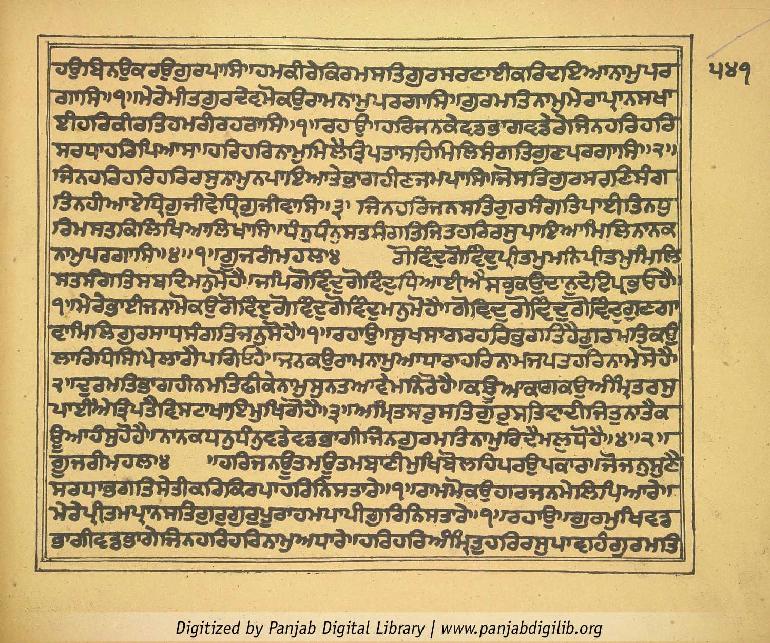 ਹਉਬਿਨਉਕਰਉਗੁਰਪਾਸਿ॥ਹਮਕੀਰੇਕਿਰਮਸਤਿਗੁਰਸਰਣਾਈਕਰਿਦਇਆਨਾਮੁਪਰ
੫੪੧
ਗਾਸਿ॥੧॥ਮੇਰੇਮੀਤਗੁਰਦੇਵਮੋਕਉਰਾਮਨਾਮੁਪਰਗਾਸਿ॥ਗੁਰਮਤਿਨਾਮੁਮੇਰਾਪ੍ਰਾਨਸਖਾ
ਈਹਰਿਕੀਰਤਿਹਮਰੀਰਹਰਾਸਿ॥੧॥ਰਹਾਉ॥ਹਰਿਜਨਕੇਵਡਭਾਗਵਡੇਰੇਜਿਨਹਰਿਹਰਿ
ਸਰਧਾਹਰਿਪਿਆਸ॥ਹਰਿਹਰਿਨਾਮੁਮਿਲੈਤ੍ਰਿਪਤਾਸਹਿਮਿਲਿਸੰਗਤਿਗੁਣਪਰਗਾਸਿ॥੨॥
ਜਿਨਹਰਿਹਰਿਹਰਿਰਸੁਨਾਮੁਨਪਾਇਆਤੇਭਾਗਹੀਣਜਮਪਾਸਿ॥ਜੋਸਤਿਗੁਰਸਰਣਿਸੰਗ
ਤਿਨਹੀਆਏਧ੍ਰਿਗੁਜੀਵੇਧ੍ਰਿਗੁਜੀਵਾਸਿ॥੩॥ਜਿਨਹਰਿਜਨਸਤਿਗੁਰਸੰਗਤਿਪਾਈਤਿਨਧੁ
ਰਿਮਸਤਕਿਲਿਖਿਆਲਿਖਾਸਿ॥ਧੰਨੁਧੰਨੁਸਤਸੰਗਤਿਜਿਤਹਰਿਰਸੁਪਾਇਆਮਿਲਿਨਾਨਕ
ਨਾਮੁਪਰਗਾਸਿ॥੪॥੧॥ਗੂਜਰੀਮਹਲਾ੪ ਗੋਵਿੰਦੁਗੋਵਿੰਦੁਪ੍ਰੀਤਮੁਮਨਿਪ੍ਰੀਤਮੁਮਿਲਿ
ਸਤਸੰਗਤਿਸਬਦਿਮਨੁਮੋਹੈ॥ਜਪਿਗੋਵਿੰਦੁਗੋਵਿੰਦੁਧਿਆਈਐਸਭਕਉਦਾਨੁਦੇਇਪ੍ਰਭੁਓਹੈ॥
੧॥ਮੇਰੇਭਾਈਜਨਾਮੋਕਉਗੋਵਿੰਦੁਗੋਵਿੰਦੁਗੋਵਿੰਦੁਮਨੁਮੋਹੈ॥ਗੋਵਿੰਦੁਗੋਵਿੰਦੁਗੋਵਿੰਦੁਗੁਣਗਾ
ਵਾਮਿਲਿਗੁਰਸਾਧਸੰਗਤਿਜਨੁਸੋਹੈ॥੧॥ਰਹਾਉ॥ਸੁਖਸਾਗਰਹਰਿਭਗਤਿਹੈਗੁਰਮਤਿਕਉ
ਲਾਰਿਧਿਸਿਧਿਲਾਗੈਪਗਿਓਹੈ॥ਜਨਕਉਰਾਮਨਾਮੁਆਧਾਰਾਹਰਿਨਾਮਜਪਤਹਰਿਨਾਮੇਸੋਹੈ॥
੨॥ਦੁਰਮਤਿਭਾਗਹੀਨਮਤਿਫੀਕੇਨਾਮੁਸੁਨਤਆਵੈਮਨਿਰੋਹੈ॥ਕਊਆਕਾਗਕਉਅੰਮ੍ਰਿਤਰਸੁ
ਪਾਈਐਤ੍ਰਿਪਤੈਵਿਸਟਾਖਾਇਮੁਖਿਗੋਹੈ॥੩॥ਅੰਮ੍ਰਿਤਸਰੁਸਤਿਗੁਰੁਸਤਿਵਾਦੀਜਿਤੁਨਾਤੈਕ
ਊਆਹੰਸੁਹੋਹੈ॥ਨਾਨਕਧਨੁਧੰਨੁਵਡੇਵਡਭਾਗੀਜਿਨਗੁਰਮਤਿਨਾਮੁਰਿਦੈਮਲੁਧੋਹੈ॥੪॥੨॥
ਗੂਜਰੀਮਹਲਾ੪ ॥ਹਰਿਜਨਊਤਮਊਤਮਬਾਣੀਮੁਖਿਬੋਲਹਿਪਰਉਪਕਾਰੇ॥ਜੋਜਨੁਸੁਣੈ
ਸਰਧਾਭਗਤਿਸੇਤੀਕਰਿਕਿਰਪਾਹਰਿਨਿਸਤਾਰੇ॥੧॥ਰਾਮਮੋਕਉਹਰਿਜਨਮੇਲਿਪਿਆਰੇ॥
ਮੇਰੇਪ੍ਰੀਤਮਪ੍ਰਾਨਸਤਿਗੁਰੁਗੁਰੁਪੂਰਾਹਮਪਾਪੀਗੁਰਿਨਿਸਤਾਰੇ॥੧॥ਰਹਾਉ॥ਗੁਰਮੁਖਿਵਡ
ਭਾਗੀਵਡਭਾਗੇਜਿਨਹਰਿਹਰਿਨਾਮੁਅਧਾਰੇ॥ਹਰਿਹਰਿਅੰਮ੍ਰਿਤੁਹਰਿਰਸੁਪਾਵਹਿਗੁਰਮਤਿ
Digitized by Panjab Digital Library | www.panjabdigilib.org